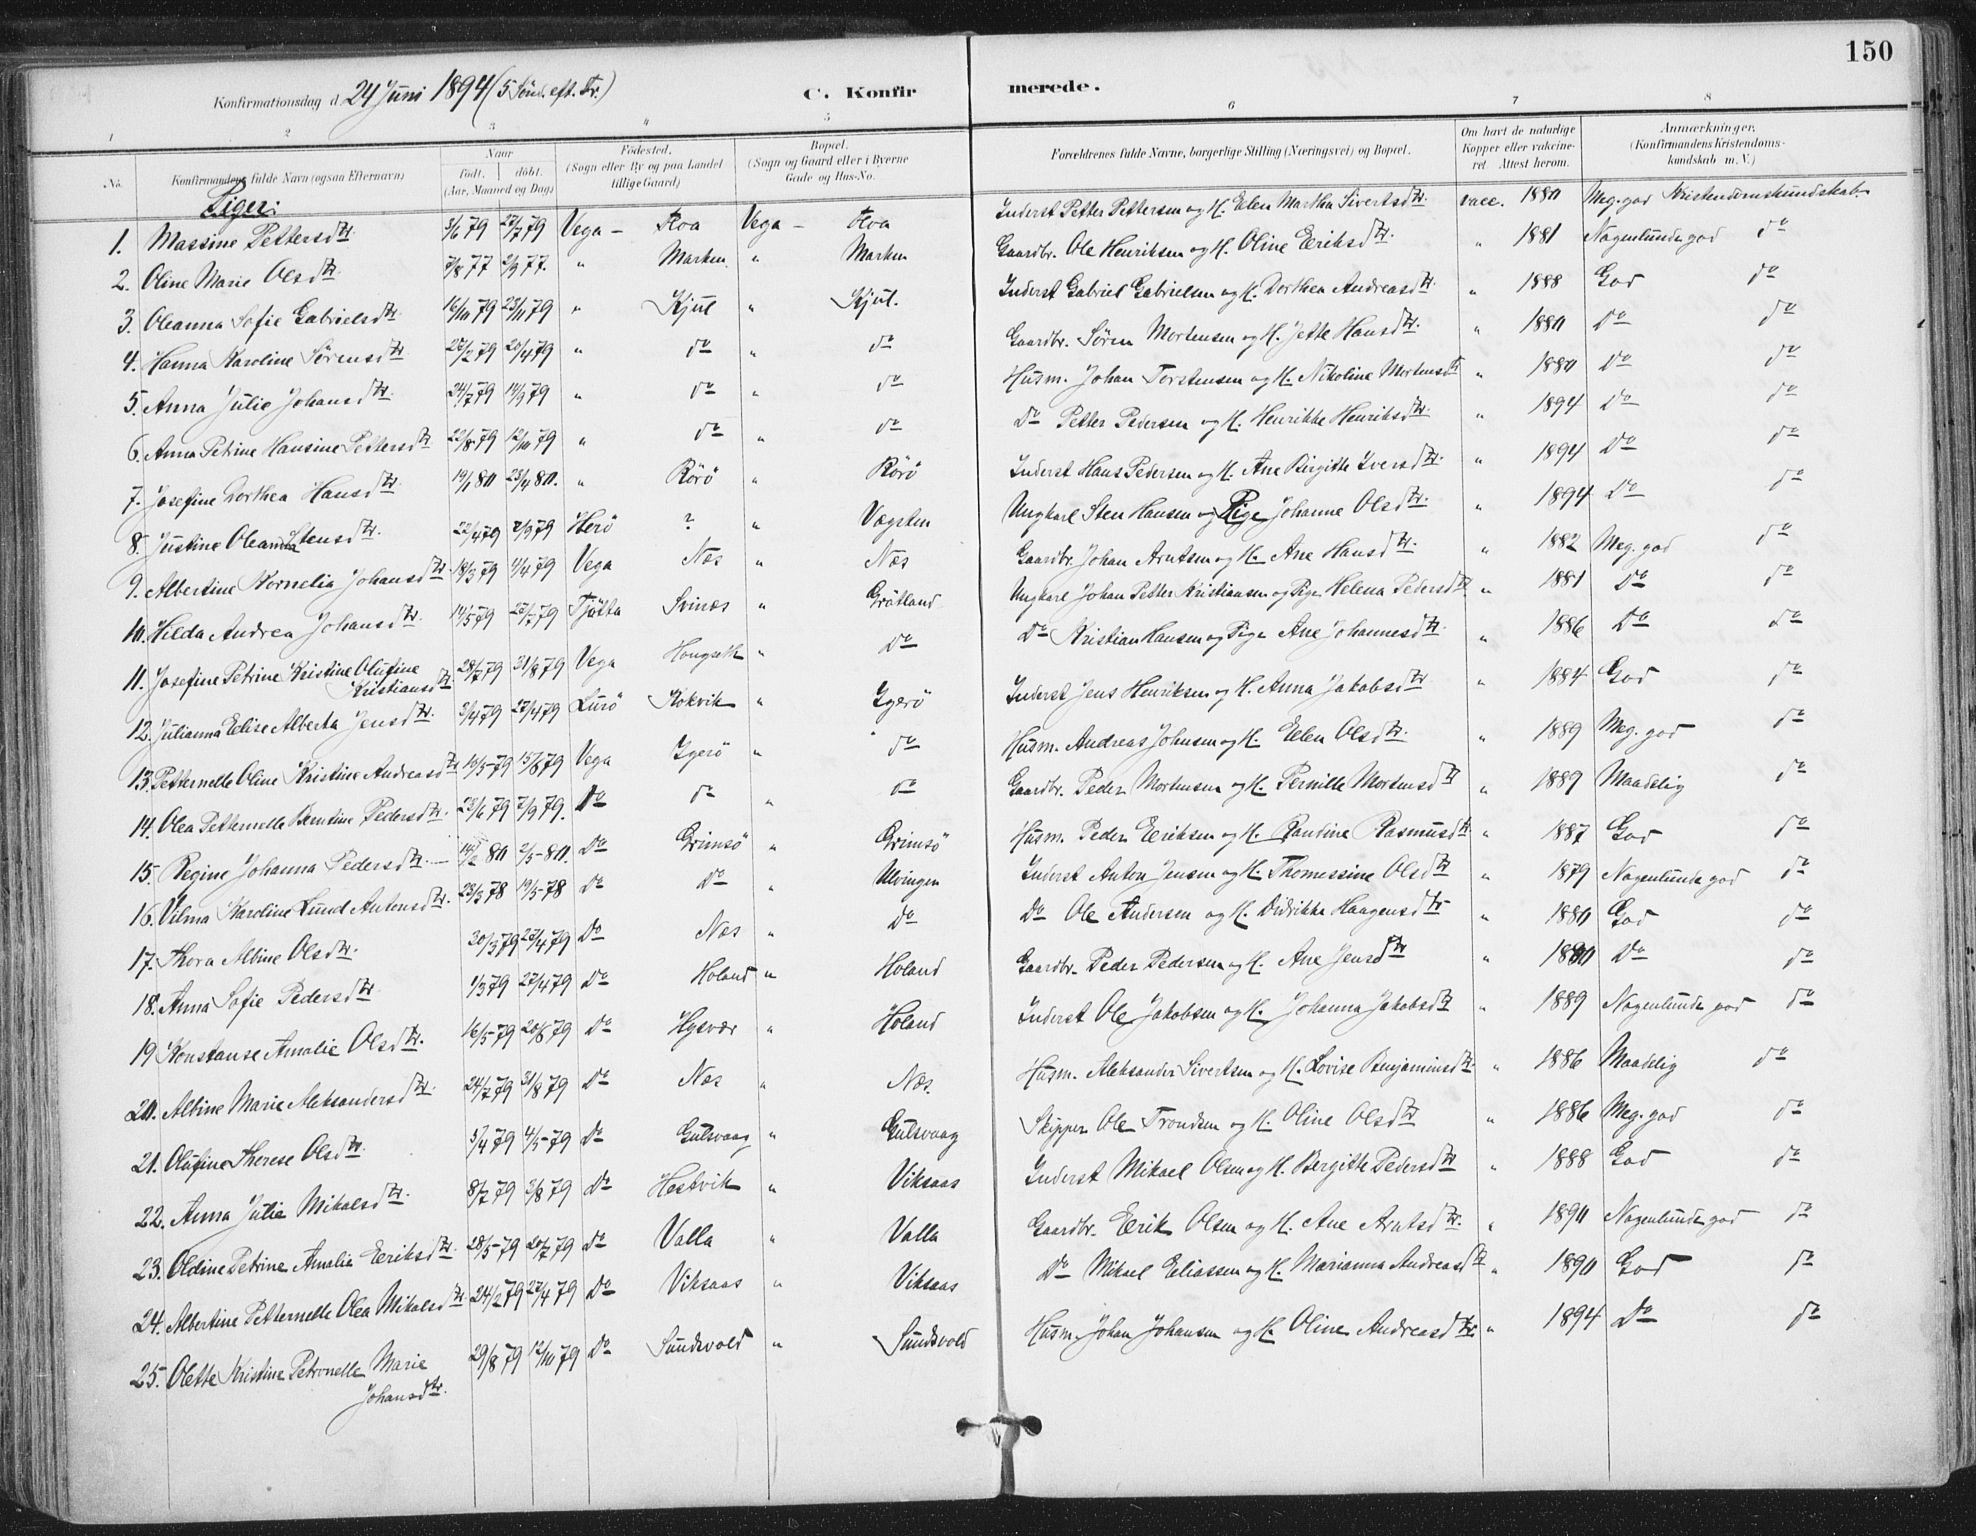 150
Konfirmationsdag d. 24 Juni 1894 (5 Sönd. eft. Tr.) C. Konfirmerede.
1 2 3 4 5 6 7 8
No. Konfirmandens fulde Navn (ogsaa Efternavn) Naar Födt. döbt. (Aar, Maaned og Dag) Födested. (Sogn eller By og paa Landet tillige Gaard) Bopæl. (Sogn og Gaard eller i Byerne Gade og Hus-No. Forældrenes fulde Navne, borgerlige Stilling (Næringsvei) og Bopæl. Om havt de naturlige Kopper eller vaccineret. Attest herom. Anmærkninger. (Konfirmandens Kristendomskundskab m. V.)
Piger:
1. Massine Pettersdtr. 3/6 79 27/7 79 Vega – Floa Vega – Floa Inderst Petter Pettersen og H. Elen Martha Sivertsdtr. vacc. 1880 Meg. god Kristendomskundskab.
2. Oline Marie Olsdtr. 7/8 77 2/9 77. " Marken " Marken Gaardbr. Ole Henriksen og H. Oline Eriksdtr. " 1881 Nogenlunde god do
3. Oleanna Sofie Gabrielsdtr. 16/10 79 23/11 79 " Kjul " Kjul. Inderst Gabriel Gabrielsen og H. Dorthea Andreasdtr. " 1888 God do
4. Hanna Karoline Sörensdtr. 22/2 79 20/4 79 " do " do Gaardbr. Sören Mortensen og H. Jette Hansdtr. " 1880 Do do
5. Anna Julie Johansdtr. 24/7 79 14/9 79 " do " do Husm. Johan Torstensen og H. Nikoline Mortensdtr " 1880 Do do
6. Anna Petrine Hansine Pettersdtr 22/8 79 12/10 79 " do " do Do Petter Pedersen og H. Henrikke Henriksdtr. " 1894 Do do
7. Josefine Dorthea Hansdtr. 19/1 80 23/4 80. " Rörö " Rörö Inderst Hans Pedersen og H. Ane Birgitte Iversdtr. " 1894 Do do
8. Justine Oleanna Stensdtr. 22/4 79 2/9 79 Herö ? " Vægsten Ungkarl Sten Hansen og Pige Johanne Olsdtr. " 1894 Do do
9. Albertine Kornelia Johansdtr. 18/3 79 11/4 79 Vega Næs " Næs Gaardbr. Johan Arntsen og H. Ane Hansdtr. " 1882 Meg. god do
10. Hilda Andrea Johansdtr. 14/5 79 27/7 79 Tjötta Svinæs " Grötland Ungkarl Johan Petter Kristiansen og Pige Helena Pedersdtr " 1881 Do do
11. Josefine Petrine Kristine Olufine Kristiansdtr. 28/7 79 31/8 79 Vega Hongseth " Do Do Kristian Hansen og Pige Ane Johannesdtr. " 1886 Do do
12. Julianna Elise Alberta Jensdtr. 3/4 79 27/4 79 Lurö Kokvik " Ygerö Inderst Jens Henriksen og H. Anna Jakobsdtr " 1884 God do
13. Petternelle Oline Kristine Andreasdtr 10/5 79 15/6 79 Vega Ygerö " do Husm. Andreas Johnsen og H. Elen Olsdtr. " 1889 Meg. god do
14. Olea Petternelle Berntine Pedersdtr. 23/6 79 7/9 79. Do do " do Gaardbr. Peder Mortensen og H. Pernille Mortensdtr " 1889 Maadelig do
15. Regine Johanna Pedersdtr. 19/2 80 2/5 80. Do Grimsö " Grimsö Husm. Peder Eriksen og H. Randine Rasmusdtr " 1887 God do
16. Vilma Karoline Lund Antonsdtr. 23/3 78 19/5 78 Do Do " Ulvingen Inderst Anton Jensen og H. Thomessine Olsdtr " 1879 Nogenlunde god do
17. Thora Albine Olsdtr. 30/3 79 27/4 79 Do Næs " Do Do Ole Andersen og H. Didrikke Haagensdtr " 1880 God do
18. Anna Sofie Pedersdtr. 1/3 79 27/4 79 Do Holand " Holand Gaardbr. Peder Pedersen og H. Ane Jensdtr " 1880 Do do
19 Konstanse Amalie Olsdtr. 16/5 79 20/6 79 Do Hysvær " Holand Inderst Ole Jakobsen og H. Johanna Jakobsdtr " 1889 Nogenlunde god do
20. Albine Marie Aleksandersdtr. 24/7 79 31/8 79 Do Næs " Næs. Husm. Aleksander Sivertsen og H. Lovise Benjaminsdtr " 1886 Maadelig do
21. Olufine Therese Olsdtr. 5/4 79 4/5 79 Do Gulsvaag " Gulsvaag Skipper Ole Trondsen og H. Oline Olsdtr " 1886 Meg. god do
22. Anna Julie Mikalsdtr. 8/7 79 3/8 79 Do Hestvik " Viksaas Inderst Mikael Olsen og H. Bergitte Pedersdtr " 1888 God do
23. Oldine Petrine Amalie Eriksdtr. 28/5 79 20/7 79 Do Valla " Valla Gaardbr. Erik Olsen og H. Ane Arntsdtr. " 1890 Nogenlunde god do
24. Albertine Petternelle Olea Mikalsdtr. 24/2 79 27/4 79 Do Viksaas " Viksaas Do Mikael Eliassen og H. Marianna Andreasdtr " 1890 God do
25. Olette Kristine Petronelle Marie Johansdtr. 29/8 79 12/10 79 Do Sundsvold " Sundsvold Husm. Johan Johansen og H. Oline Andreasdtr " 1894 Do do